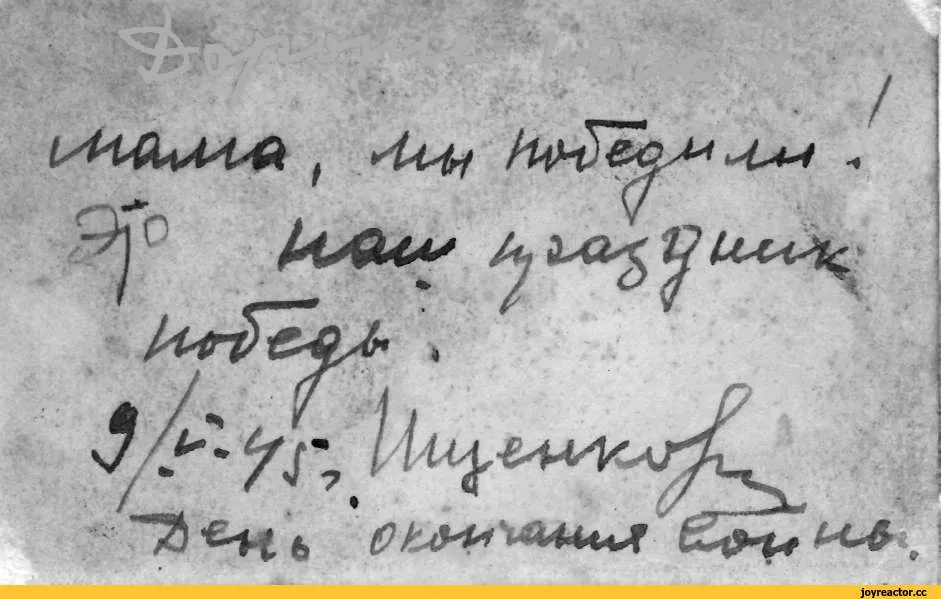 Дорогая
мама, мы победили!
Это наш праздник
победы.
9/V-45г. Ищенков
День окончания войны.
joyreactor.cc